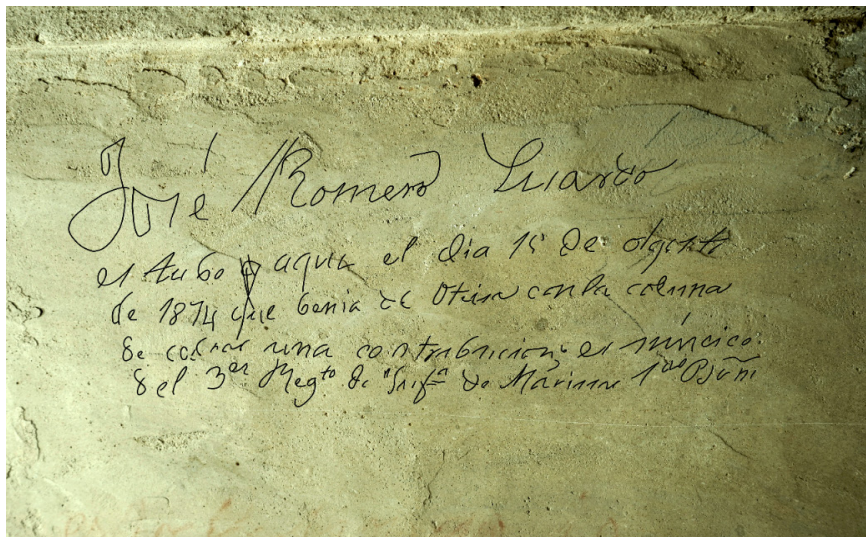 José Romero Suarco
es tubo aquia el dia 15 de Agosto
de 1874 que benia de con la colunna
de cobrar una contribucion es músico
del 3er Regto de Infª de Marina 1er